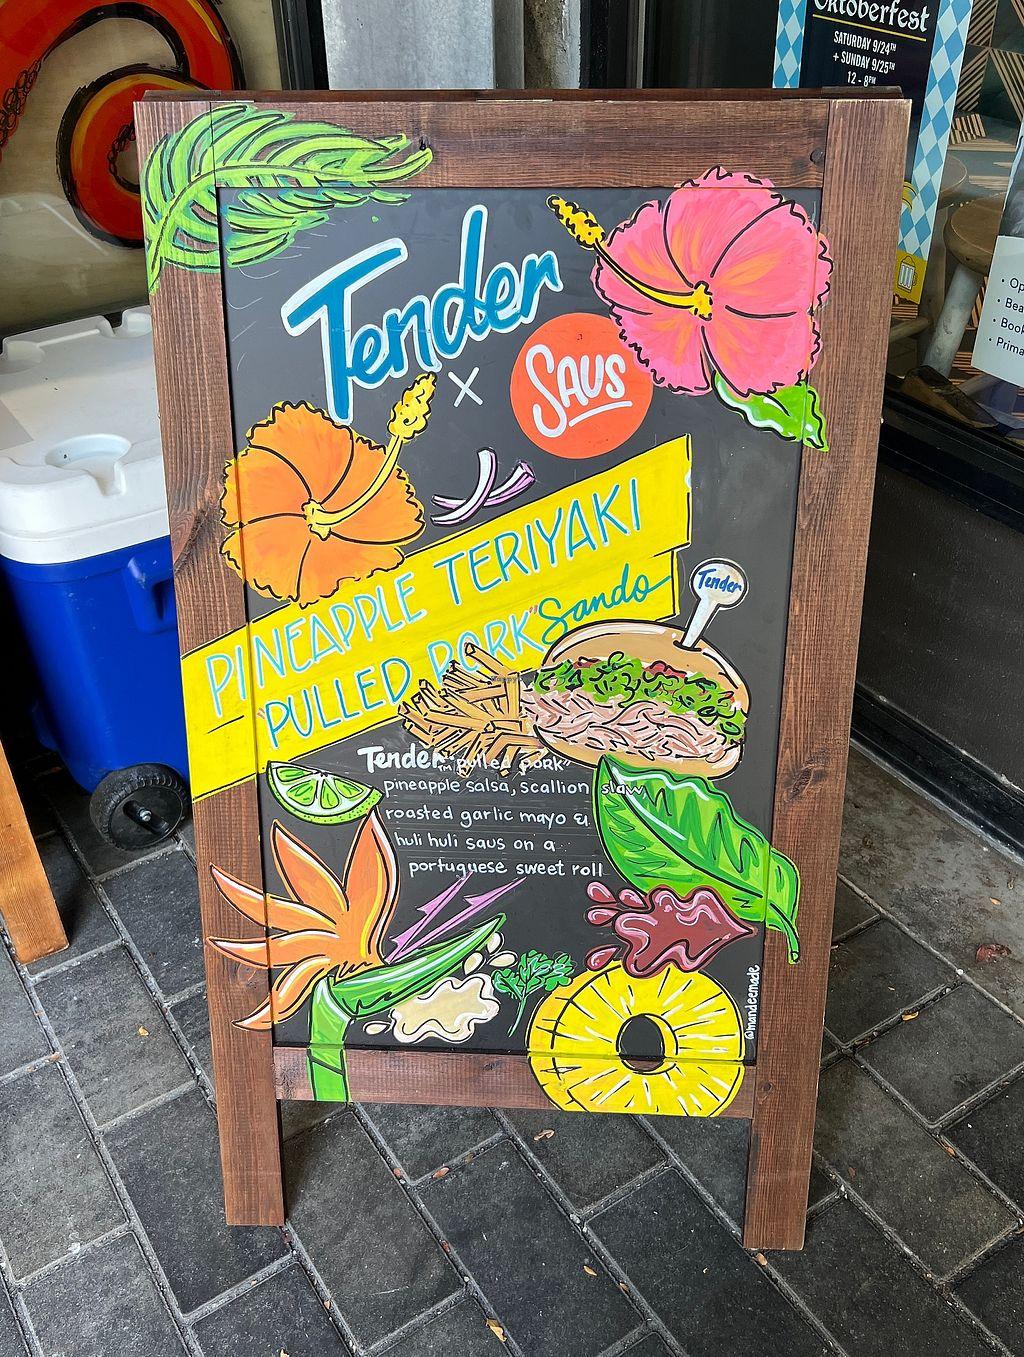 Oktoberfest
SATURDAY 9/24TH
+ SUNDAY 9/25TH
12 - 8PM
Tender
x
SAUS
PINEAPPLE TERIYAKI
"PULLED PORK" Sando
Tender
Tender™ "pulled pork"
pineapple salsa, scallion slaw,
roasted garlic mayo &
huli huli saus on a
portuguese sweet roll
@mandeemade